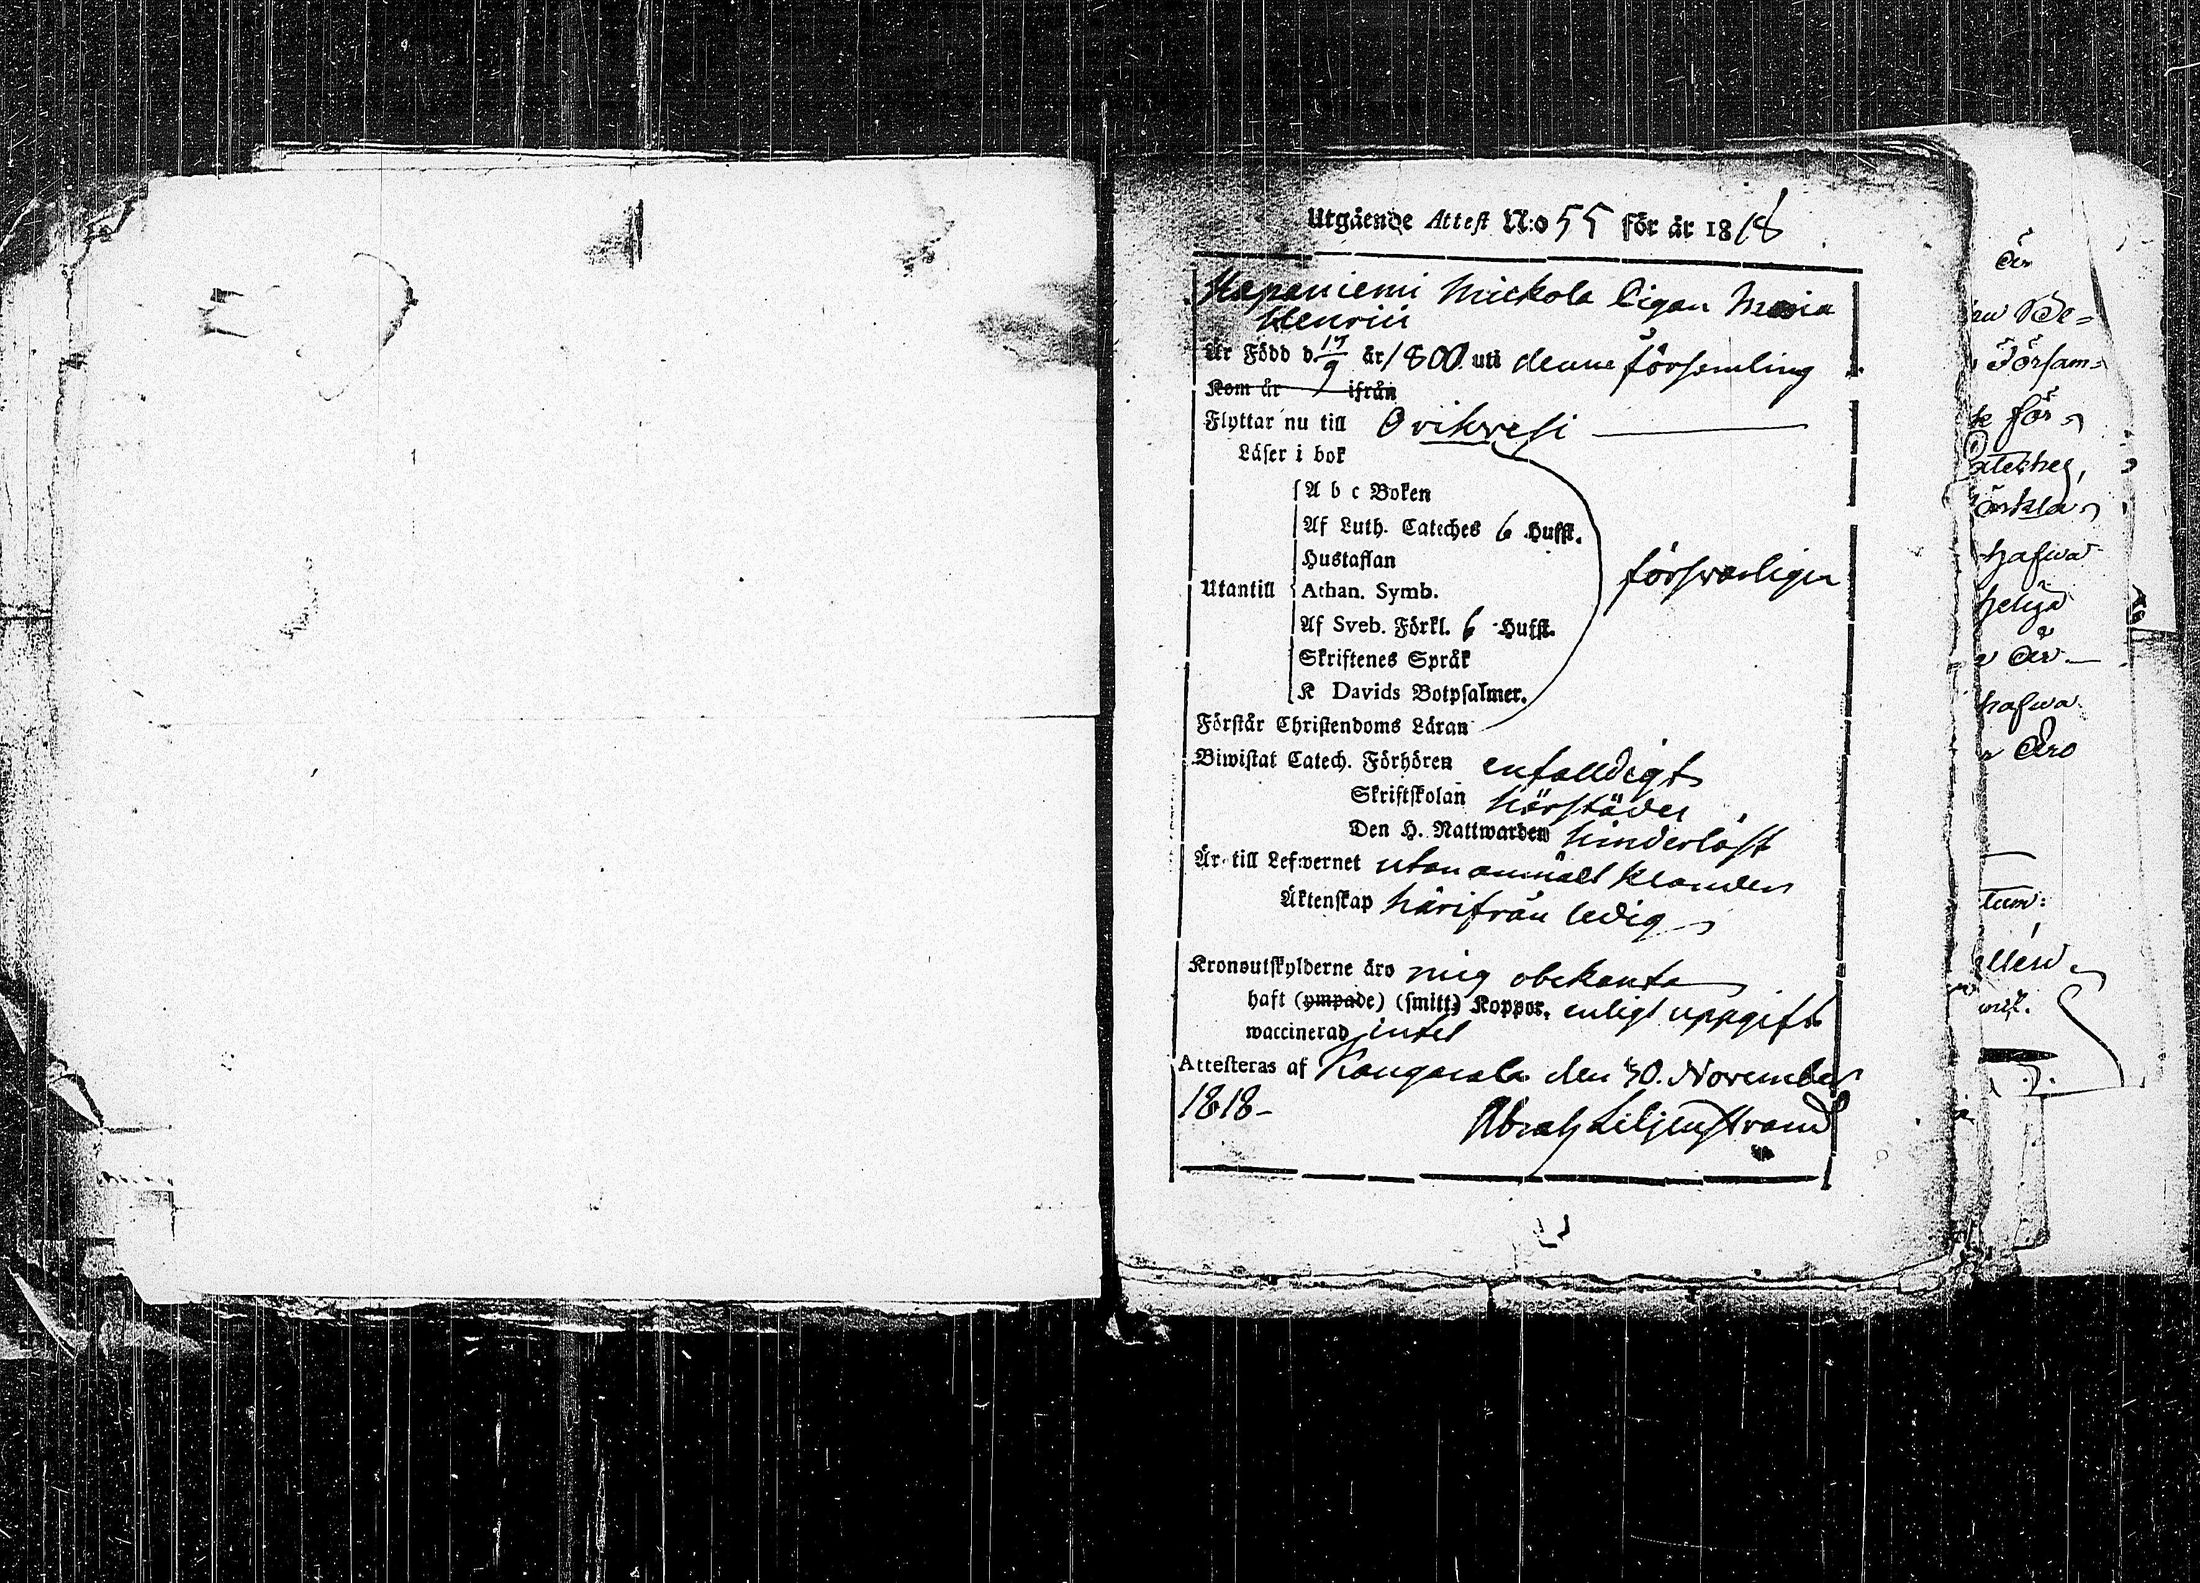 Utgående Attest N:o 55 för år 1818
Hapaniemi Mickola Pigan Maria
Henrici
Är Född d. 17/9 år 1800 uti denne församling
Kom år ifrån
Flyttar nu till Orihvesi
Läser i bok
A b c Boken
Af Luth. Cateches 6 Hufst.
Hustaflan
försvarligen
Utantill Athan. Symb.
Af Sveb. Förkl. 6 Hufst.
Skriftenes Språk
K Davids Botpsalmer.
Förstår Christendoms Läran
Biwistat Catech. Förhören enfalldigt
Skriftskolan härstädes
Den H. Nattwarden hinderlöst
Är till Lefwernet utan anmält klander
Äktenskap härifrån ledig
Kronoutskylderne äro mig obekanta
haft (ympade) (smitt) Koppor. enligt uppgift
waccinerad intet
Attesteras af Kangasala den 30. November
1818-
Abrah Liljenstrand
är
Be=
Försam=
för
Cateches,
örkla
hafwa
heliga
är
hafwa
äro